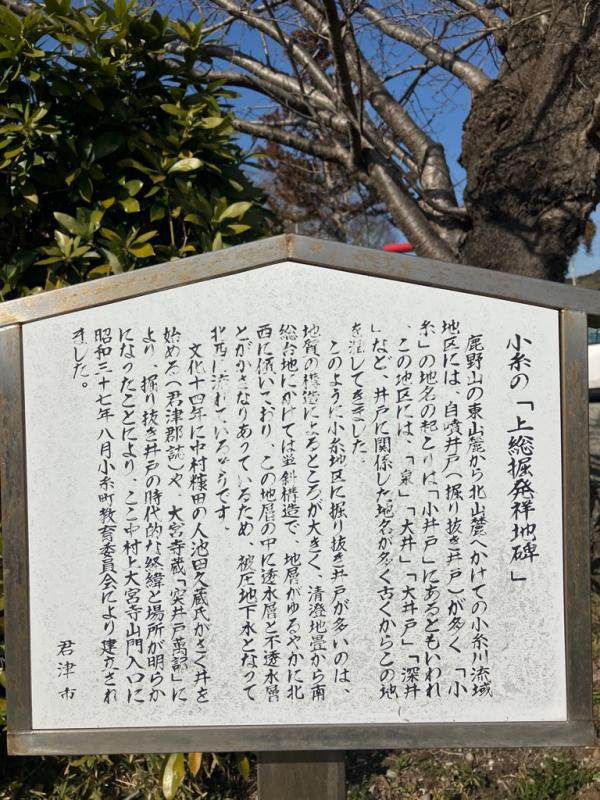 小糸の「上総掘発祥地碑」
鹿野山の東山麓から北山麓へかけての小糸川流域
地区には、自噴井戸(掘り抜き井戸)が多く、「小
糸」の地名の起こりは「小井戸」にあるともいわれ
、この地区には、「泉」「大井」「大井戸」「深井
」など、井戸に関係した地名が多く古くからこの地
を潤してきました。
このように小糸地区に掘り抜き井戸が多いのは、
地質の構造によるところが大きく、清澄地畳から南
総台地にかけては単斜構造で、地層がゆるやかに北
西に傾いており、この地層の中に透水層と不透水層
とがかさなりあっているため、被圧地下水となって
北西に流れているようです。
文化十四年に中村糠田の人池田久蔵氏がさく井を
始める(君津郡誌)や、大宮寺蔵「突井戸萬認」に
より、掘り抜き井戸の時代的な経緯と場所が明らか
になったことにより、ここ中村上大宮寺山門入口に
昭和三十七年八月小糸町教育委員会により建立され
ました。
君津市